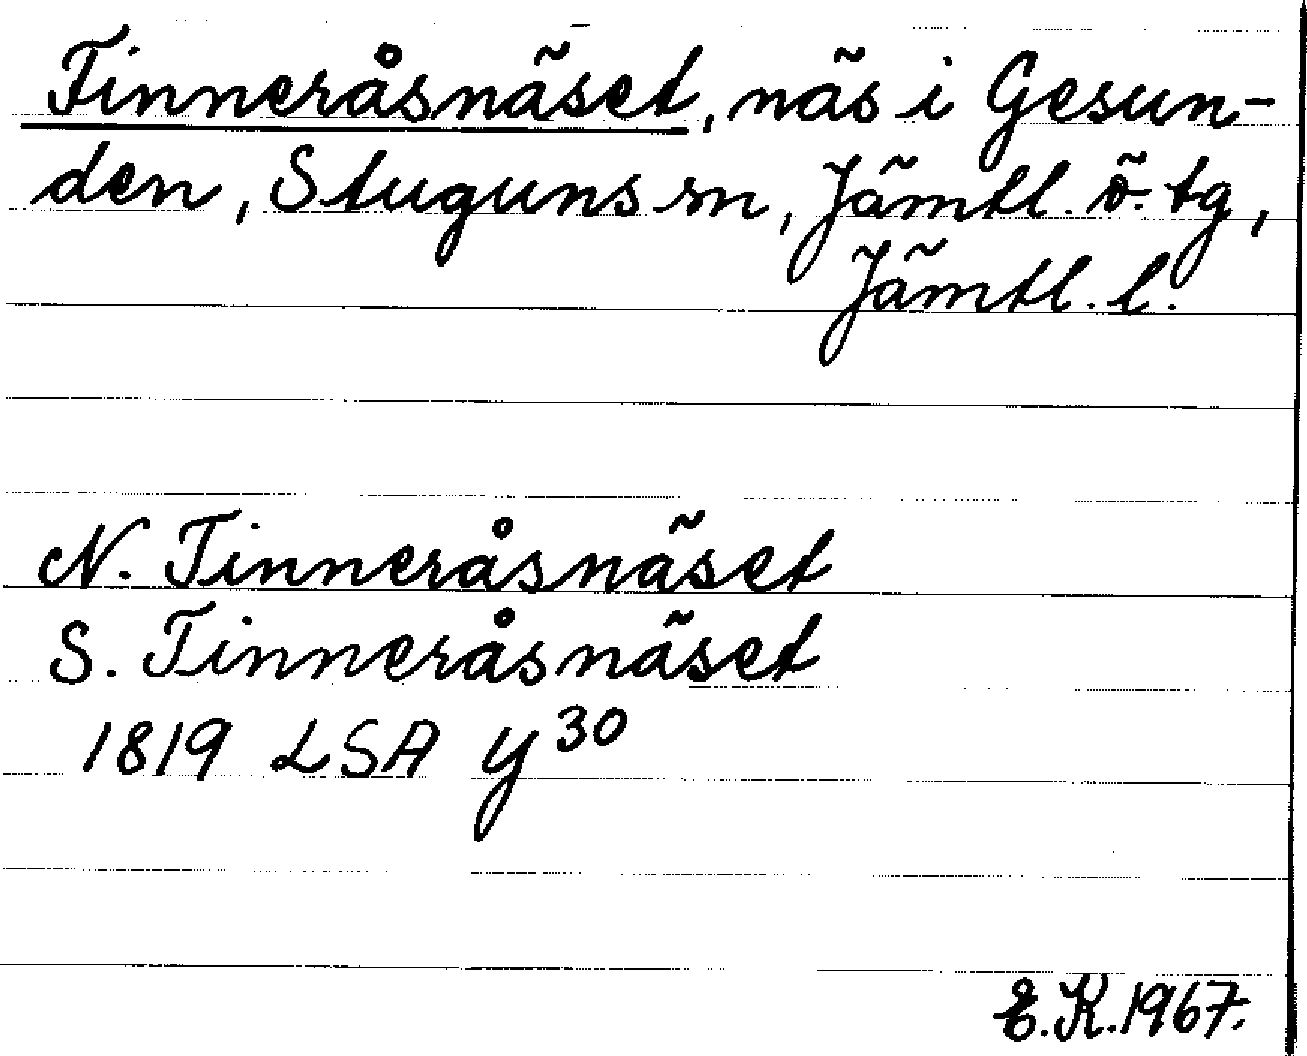 Tinneråsnäset, näs i Gesun-
den, Stuguns sn, Jämtl. ö. tg,
Jämtl. l.
N. Tinneråsnäset
S. Tinneråsnäset
1819 LSA y30
E.K.1967.